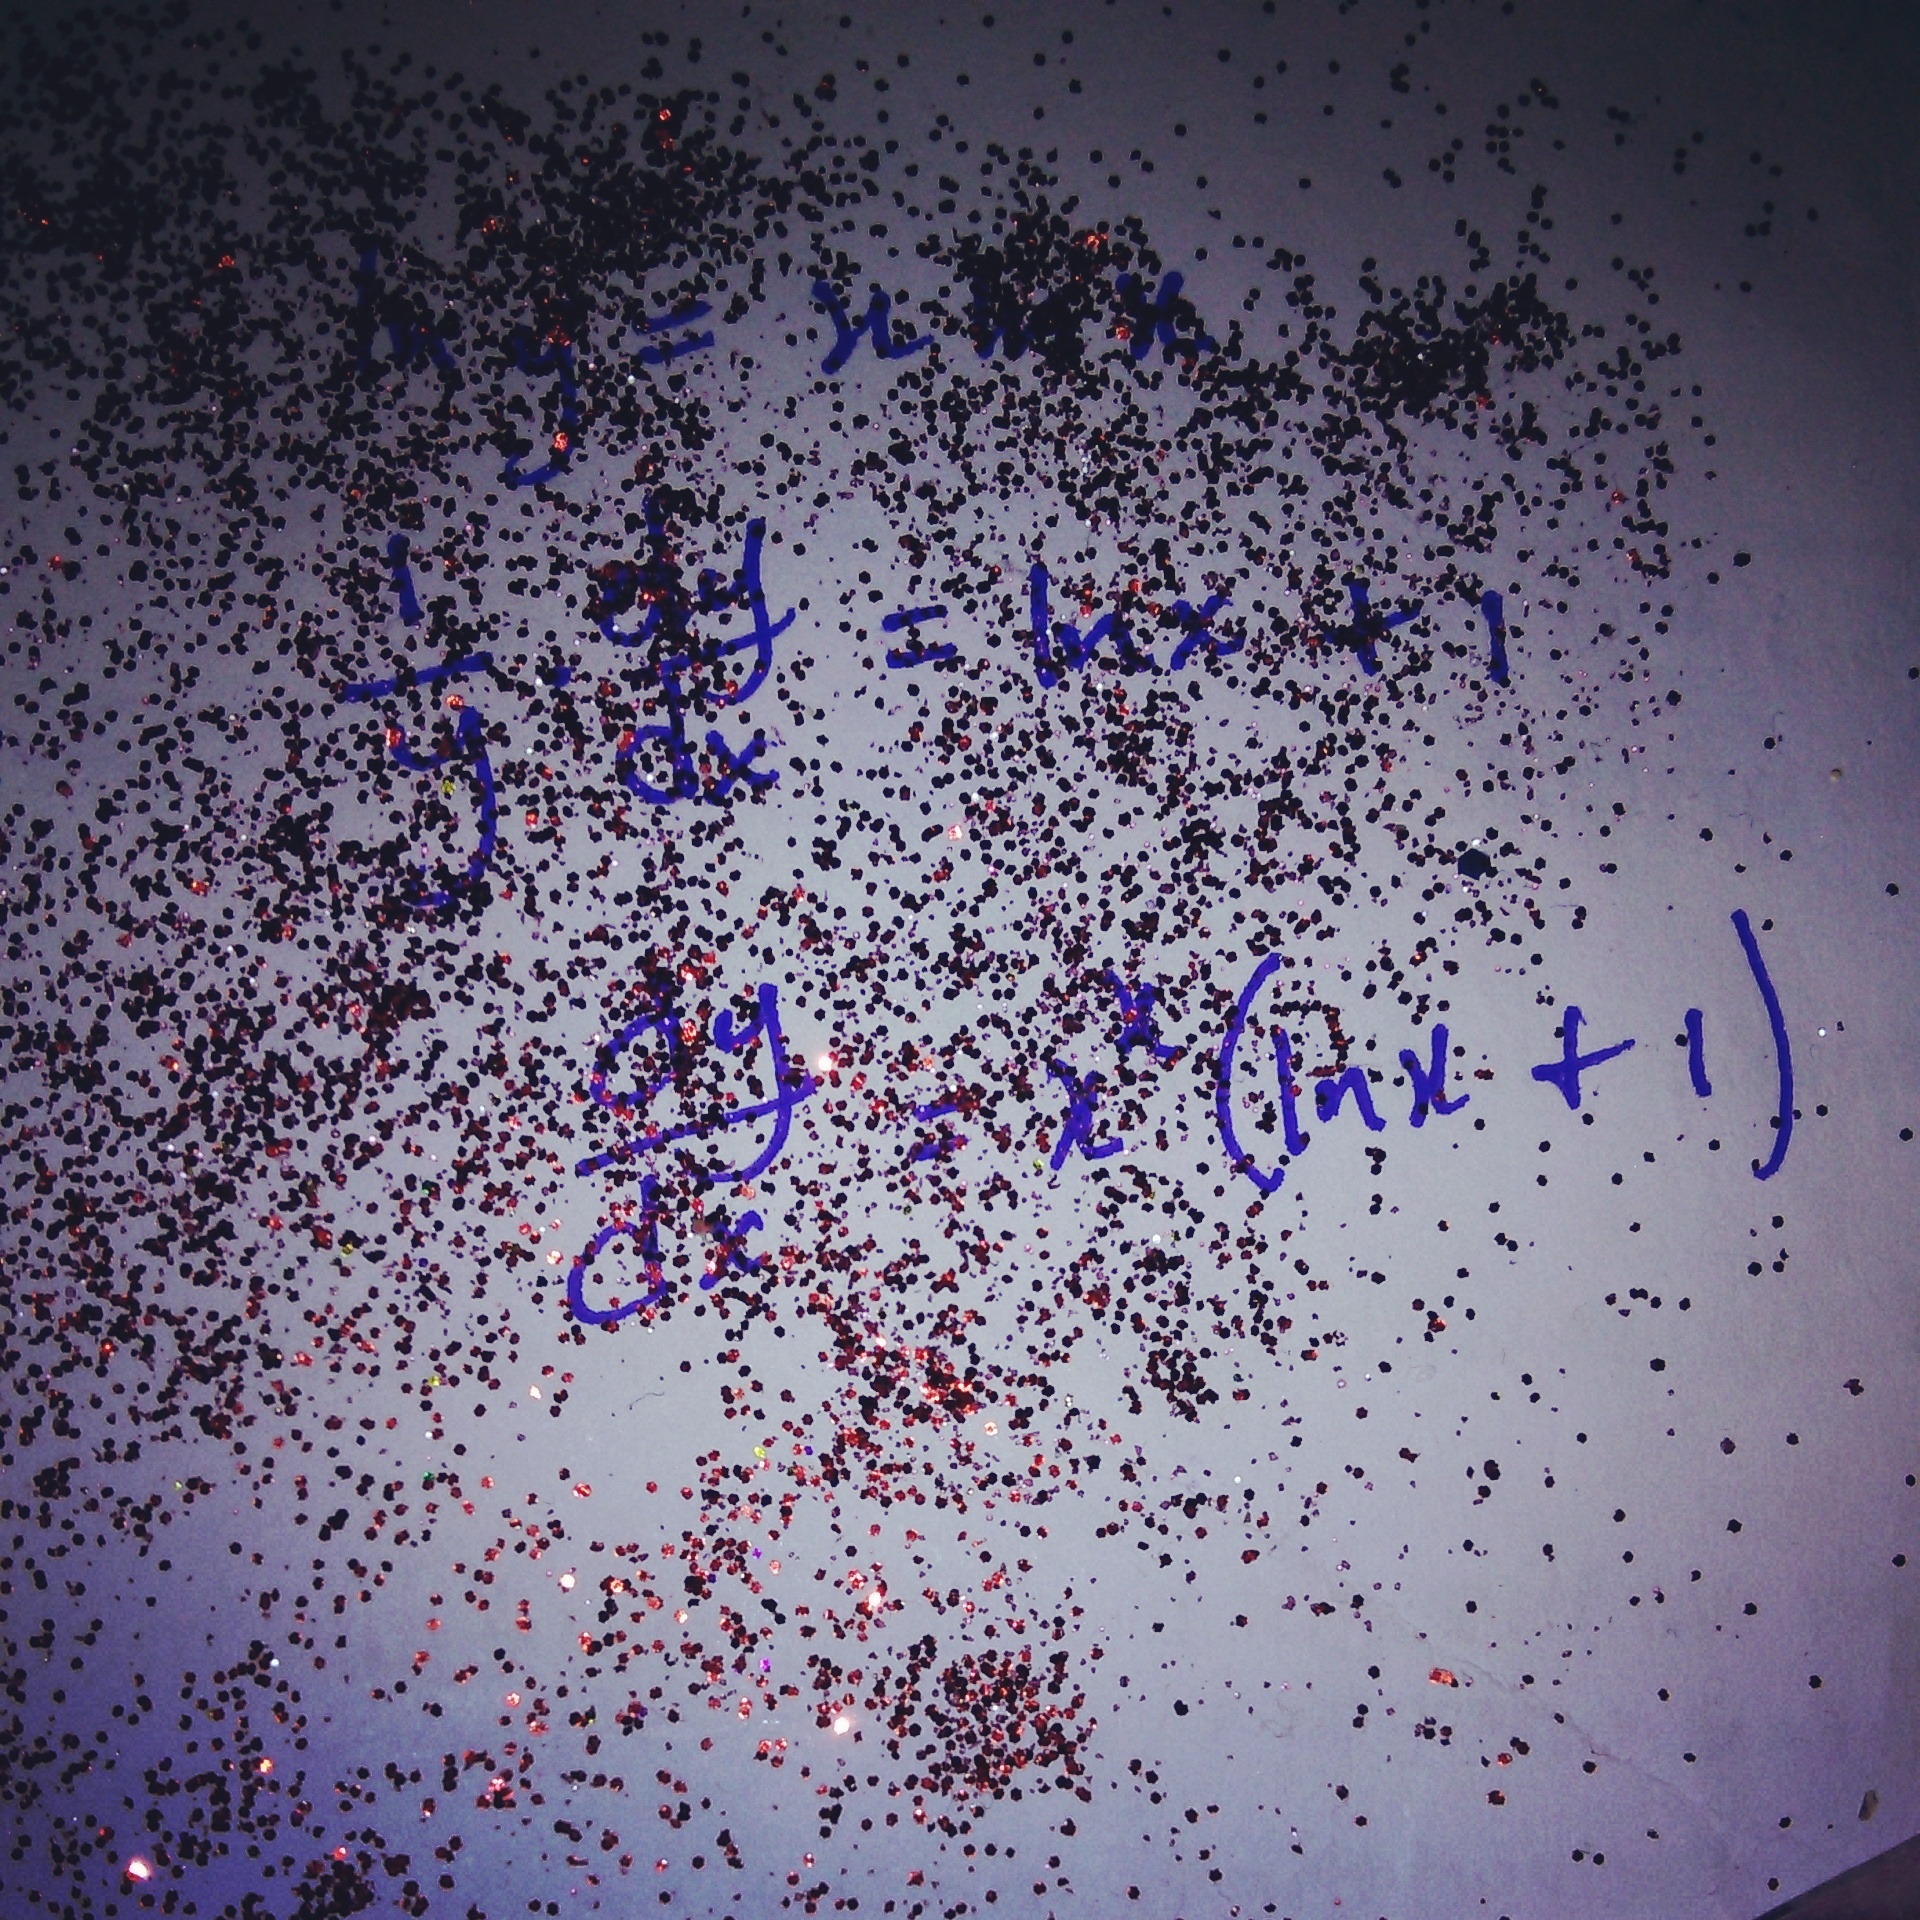 ln y = x ln x
1/y · dy/dx = ln x + 1
dy/dx = x^x (ln x + 1)